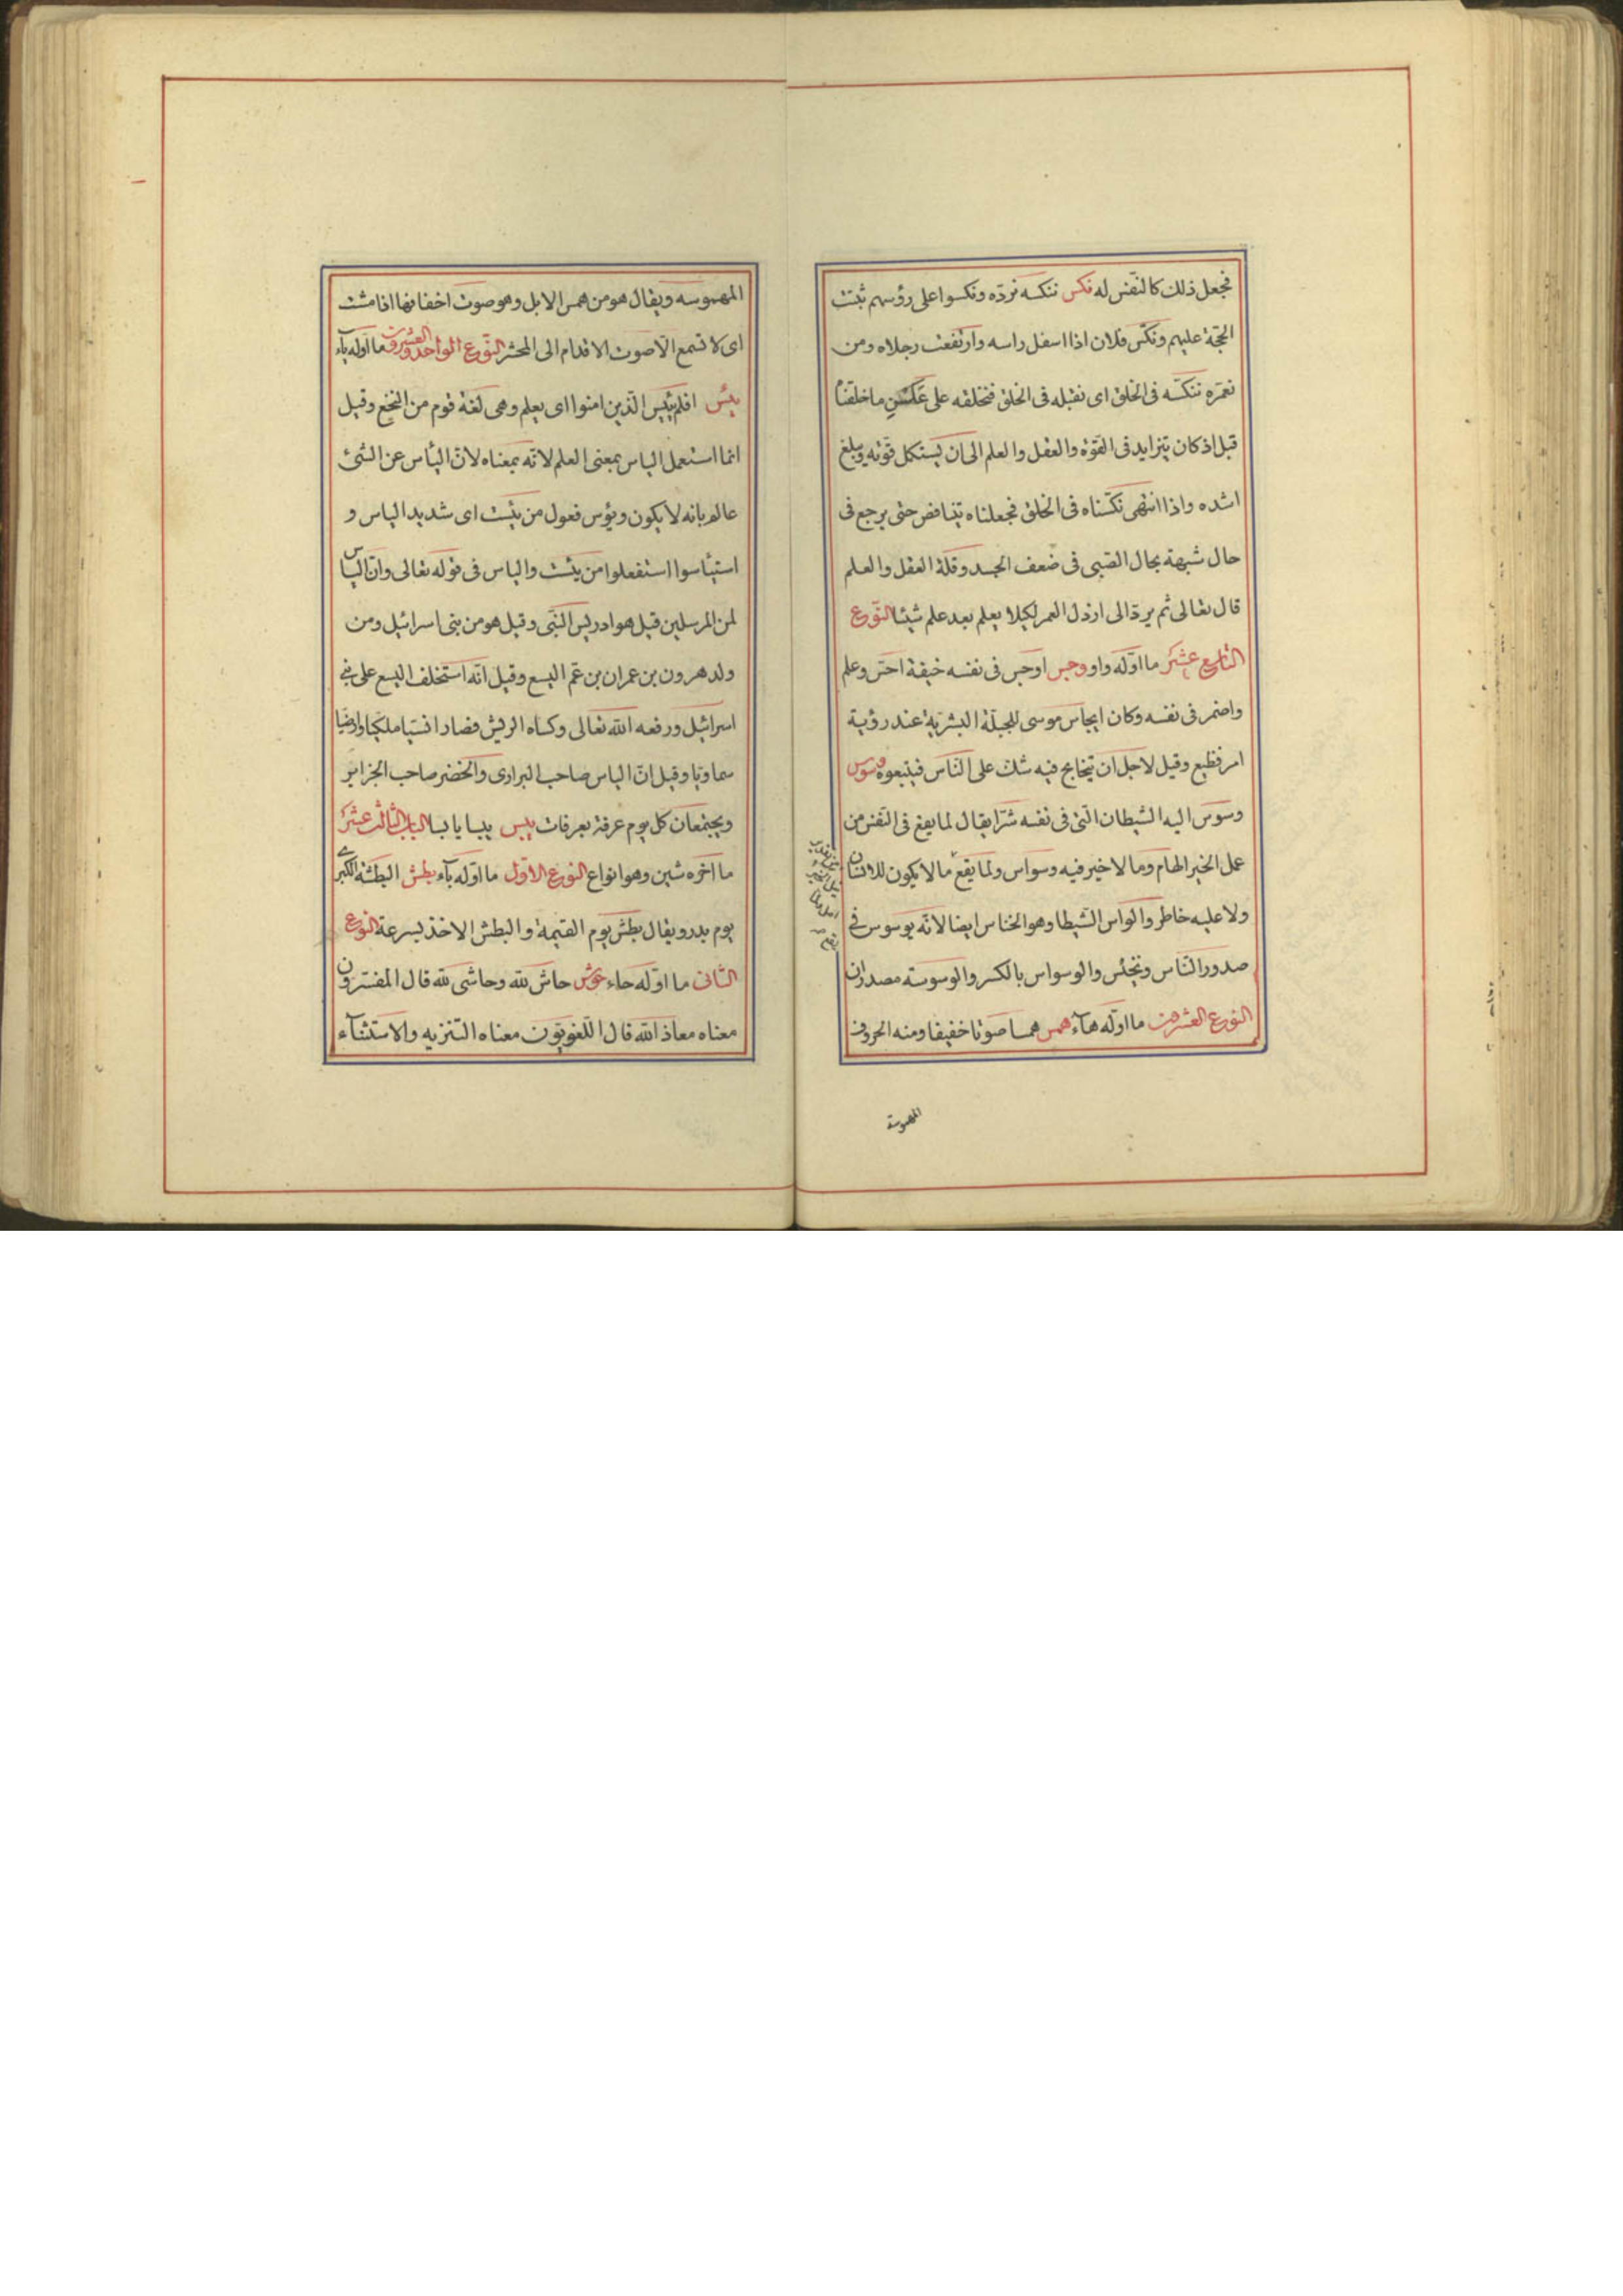 فجعل ذلك كالنفس له نكس ننكسه نردّه ونكسوا على رؤسهم ثبتت
الحجّة عليهم ونكّس فلان اذا اسفل راسه وارتفعت رجلاه ومن
نعمّره ننكّسه فى الخلق اى نقلبه فى الخلق فنخلقه على عكس ما خلقنا
قبل اذ كان يتزايد فى القوّة والعقل والعلم الى ان يستكمل قوّته ويبلغ
اشده واذا انتهى نكّسناه فى الخلق فجعلناه يتناقص حتى يرجع فى
حال شبهة بحال الصّبى فى ضعف الجسد وقلة العقل والعلم
قال تعالى ثم يردّ الى ارذل العمر لكيلا يعلم بعد علم شيئا النّوع
التاسع عشر ما اوّله واو وجس اوجس فى نفسه خيفة احسّ وعلم
واضمر فى نفسه وكان ايجاس موسى للجبلّة البشريّة عند رؤية
امر فظيع وقيل لاجل ان يتخالج فيه شك على النّاس فيتبعوه وسوس
وسوس اليه الشيطان القى فى نفسه شرّا يقال لما يقع فى النّفس من
عمل الخير الهام وما لا خير فيه وسواس ولما يقع ما لا يكون للانسان
ولا عليه خاطر والواس الشّيطا وهو الخناس ايضا لانّه يوسوس فى
صدور النّاس ويخنس والوسواس بالكسر والوسوسة مصدران
النوع العشرون ما اوّله هآء همس همسا صوتا خفيفا ومنه الحروف
المهموسة
المهموسه ويقال هو من همس الابل وهو صوت اخفافها اذا مشت
اى لا تسمع الّا صوت الاقدام الى المحشر النّوع الواحد والعشرون ما اوّله يآء
يئس افلم ييئس الّذين امنوا اى يعلم وهى لغة قوم من النّخع وقيل
انما استعمل الياس بمعنى العلم لانّه بمعناه لانّ اليأس عن الشئ
عالم بانه لا يكون ويؤس فعول من يئست اى شديد الياس و
استيأسوا استفعلوا من يئست والياس فى قوله تعالى وانّ الياس
لمن المرسلين قيل هو ادريس النّبى وقيل هو من بنى اسرائيل ومن
ولد هرون بن عمران بن عمّ اليسع وقيل انّه استخلف اليسع على بنى
اسرائيل ورفعه الله تعالى وكساه الريش فصار انسيّا ملكيّا وارضيّا
سماويّا وقيل انّ الياس صاحب البرارى والخضر صاحب الجزاير
ويجتمعان كل يوم عرفة بعرفات يبس يبسا يابسا الباب الثالث عشر
ما اخره شين وهو انواع النوع الاوّل ما اوّله بآء بطش البطشة الكبرى
يوم بدر ويقال بطش يوم القيمة والبطش الاخذ بسرعة النوع
الثانى ما اوّله حاء حوش حاش لله وحاشى لله قال المفسّرون
معناه معاذ الله قال اللّغويّون معناه التّنزيه والاستثنآء